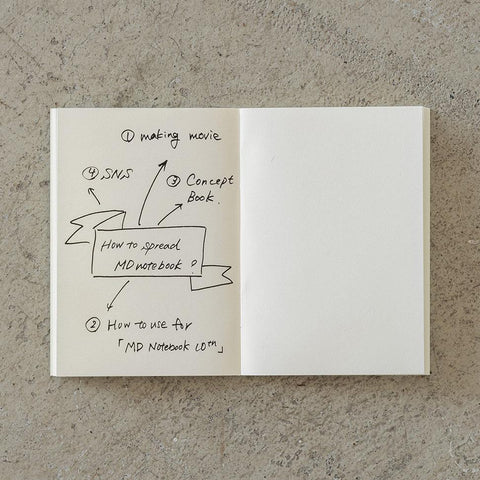 ① making movie
④ SNS
③ Concept
Book.
How to spread
MD notebook ?
② How to use for
「MD Notebook 10th」